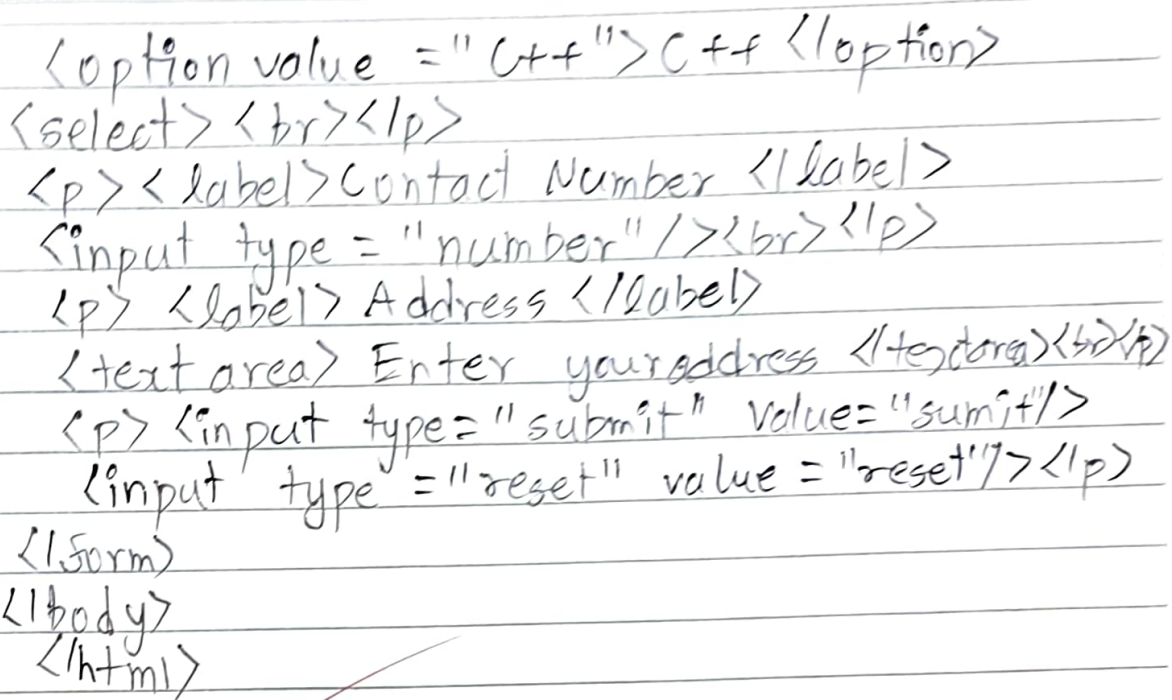 <option value ="C++">C++ </option>
<select> <br></p>
<p><label>Contact Number </label>
<input type = "number"/><br></p>
<p> <label> Address </label>
<text area> Enter your address </textarea><br></p>
<p> <input type="submit" value="sumit"/>
<input type ="reset" value ="reset"/></p>
</form>
</body>
</html>